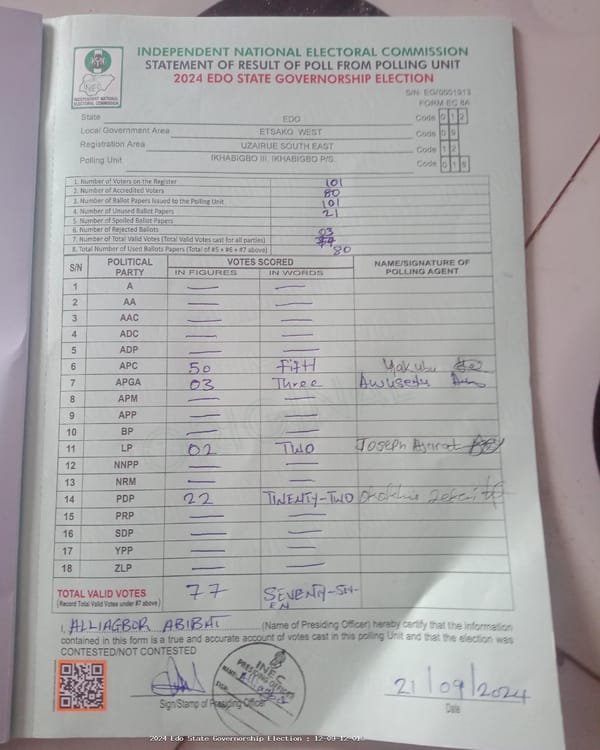 INDEPENDENT NATIONAL ELECTORAL COMMISSION
STATEMENT OF RESULT OF POLL FROM POLLING UNIT
2024 EDO STATE GOVERNORSHIP ELECTION
INEC
INDEPENDENT NATIONAL ELECTORAL COMMISSION
S/N: EG/0001913
FORM EC 8A
State EDO Code 0 1 2
Local Government Area ETSAKO WEST Code 0 9
Registration Area UZAIRUE SOUTH EAST Code 1 2
Polling Unit IKHABIGBO III, IKHABIGBO P/S. Code 0 1 6
1. Number of Voters on the Register 101
2. Number of Accredited Voters 80
3. Number of Ballot Papers Issued to the Polling Unit 101
4. Number of Unused Ballot Papers 21
5. Number of Spoiled Ballot Papers
6. Number of Rejected Ballots 03
7. Number of Total Valid Votes (Total Valid Votes cast for all parties)
8. Total Number of Used Ballots Papers (Total of #5 + #6 + #7 above) 80
S/N POLITICAL PARTY VOTES SCORED NAME/SIGNATURE OF POLLING AGENT
IN FIGURES IN WORDS
1 A — —
2 AA — —
3 AAC — —
4 ADC — —
5 ADP — —
6 APC 50 FiftI Yakubu
7 APGA 03 Three
8 APM — —
9 APP — —
10 BP — —
11 LP 02 TWO Joseph
12 NNPP — —
13 NRM — —
14 PDP 22 TWENTY-TWO
15 PRP — —
16 SDP — —
17 YPP — —
18 ZLP — —
TOTAL VALID VOTES 77 SEVENTY-SEV-
(Record Total Valid Votes under #7 above) EN
I, ALLIAGBOR ABIBAT (Name of Presiding Officer) hereby certify that the information
contained in this form is a true and accurate account of votes cast in this polling Unit and that the election was
CONTESTED/NOT CONTESTED
INEC
PRESIDING OFFICER
NAME:
SIGN:
21/09/2024
Sign/Stamp of Presiding Officer Date
2024 Edo State Governorship Election : 12-09-12-016